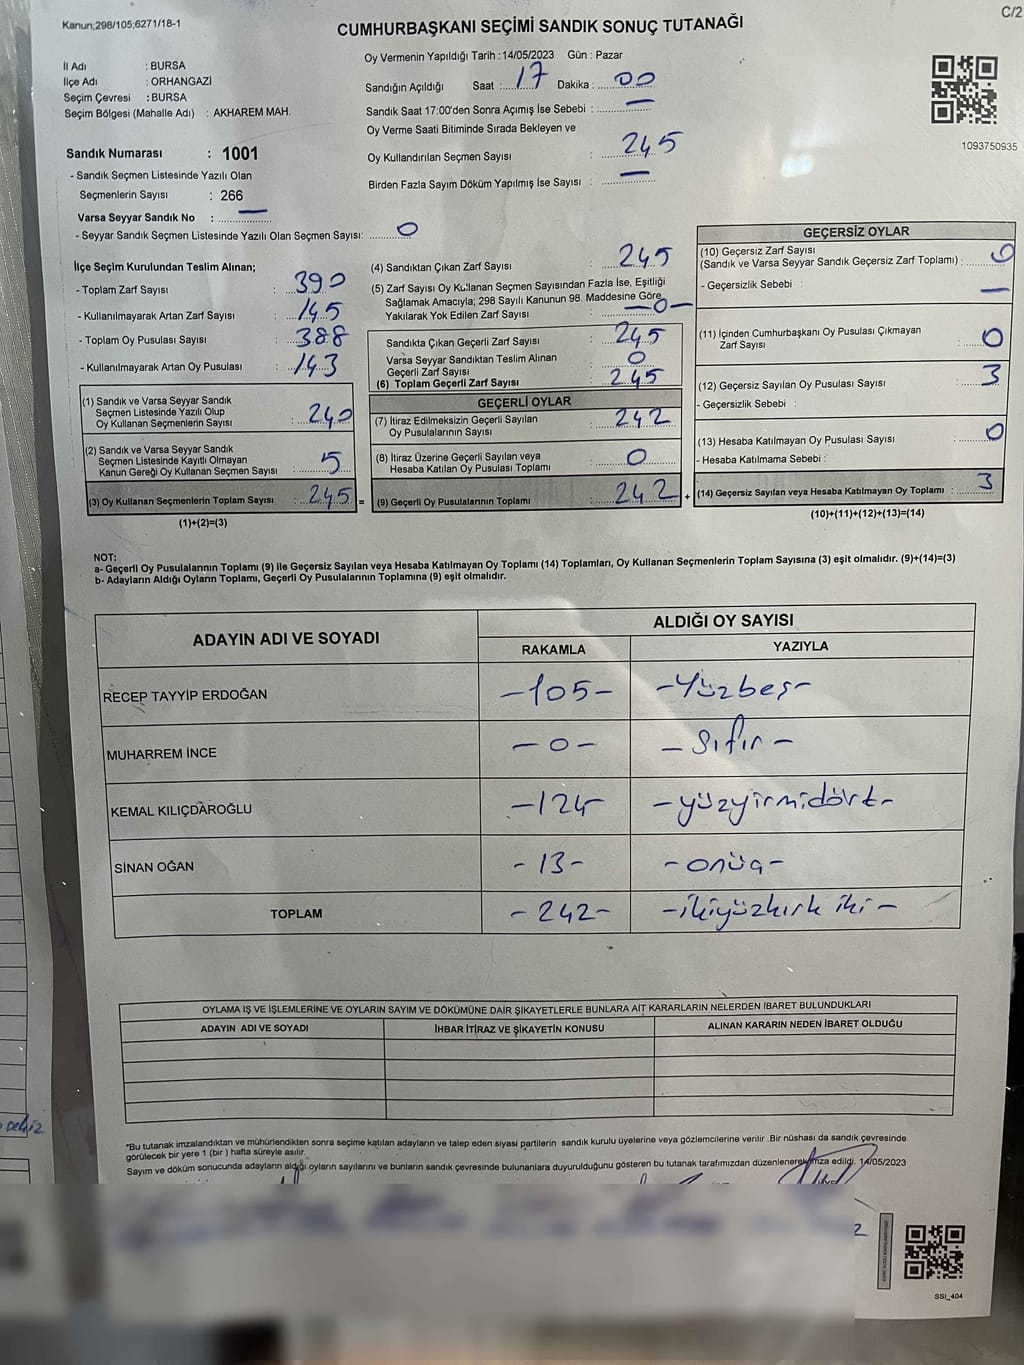 Kanun;298/105;6271/18-1
C/2
CUMHURBAŞKANI SEÇİMİ SANDIK SONUÇ TUTANAĞI
İl Adı : BURSA
İlçe Adı : ORHANGAZİ
Seçim Çevresi : BURSA
Seçim Bölgesi (Mahalle Adı) : AKHAREM MAH.
Oy Vermenin Yapıldığı Tarih : 14/05/2023 Gün : Pazar
Sandığın Açıldığı Saat : 17 Dakika : 00
Sandık Saat 17:00'den Sonra Açımış İse Sebebi : —
Oy Verme Saati Bitiminde Sırada Bekleyen ve
Oy Kullandırılan Seçmen Sayısı : 245
Birden Fazla Sayım Döküm Yapılmış İse Sayısı : —
1093750935
Sandık Numarası : 1001
- Sandık Seçmen Listesinde Yazılı Olan
Seçmenlerin Sayısı : 266
Varsa Seyyar Sandık No : —
- Seyyar Sandık Seçmen Listesinde Yazılı Olan Seçmen Sayısı: 0
İlçe Seçim Kurulundan Teslim Alınan;
- Toplam Zarf Sayısı : 390
- Kullanılmayarak Artan Zarf Sayısı : 145
- Toplam Oy Pusulası Sayısı : 388
- Kullanılmayarak Artan Oy Pusulası : 143
(1) Sandık ve Varsa Seyyar Sandık
Seçmen Listesinde Yazılı Olup
Oy Kullanan Seçmenlerin Sayısı : 240
(2) Sandık ve Varsa Seyyar Sandık
Seçmen Listesinde Kayıtlı Olmayan
Kanun Gereği Oy Kullanan Seçmen Sayısı : 5
(3) Oy Kullanan Seçmenlerin Toplam Sayısı : 245 =
(1)+(2)=(3)
(4) Sandıktan Çıkan Zarf Sayısı : 245
(5) Zarf Sayısı Oy Kullanan Seçmen Sayısından Fazla İse, Eşitliği
Sağlamak Amacıyla; 298 Sayılı Kanunun 98. Maddesine Göre
Yakılarak Yok Edilen Zarf Sayısı : —0—
Sandıkta Çıkan Geçerli Zarf Sayısı : 245
Varsa Seyyar Sandıktan Teslim Alınan
Geçerli Zarf Sayısı : 0
(6) Toplam Geçerli Zarf Sayısı : 245
GEÇERLİ OYLAR
(7) İtiraz Edilmeksizin Geçerli Sayılan
Oy Pusulalarının Sayısı : 242
(8) İtiraz Üzerine Geçerli Sayılan veya
Hesaba Katılan Oy Pusulası Toplamı : 0
(9) Geçerli Oy Pusulalarının Toplamı : 242 +
GEÇERSİZ OYLAR
(10) Geçersiz Zarf Sayısı
(Sandık ve Varsa Seyyar Sandık Geçersiz Zarf Toplamı) : 0
- Geçersizlik Sebebi : —
(11) İçinden Cumhurbaşkanı Oy Pusulası Çıkmayan
Zarf Sayısı : 0
(12) Geçersiz Sayılan Oy Pusulası Sayısı : 3
- Geçersizlik Sebebi :
(13) Hesaba Katılmayan Oy Pusulası Sayısı : 0
- Hesaba Katılmama Sebebi :
(14) Geçersiz Sayılan veya Hesaba Katılmayan Oy Toplamı : 3
(10)+(11)+(12)+(13)=(14)
NOT:
a- Geçerli Oy Pusulalarının Toplamı (9) ile Geçersiz Sayılan veya Hesaba Katılmayan Oy Toplamı (14) Toplamları, Oy Kullanan Seçmenlerin Toplam Sayısına (3) eşit olmalıdır. (9)+(14)=(3)
b- Adayların Aldığı Oyların Toplamı, Geçerli Oy Pusulalarının Toplamına (9) eşit olmalıdır.
ADAYIN ADI VE SOYADI
ALDIĞI OY SAYISI
RAKAMLA YAZIYLA
RECEP TAYYİP ERDOĞAN -105- -Yüzbeş-
MUHARREM İNCE -0- -Sıfır-
KEMAL KILIÇDAROĞLU -124- -yüzyirmidört-
SİNAN OĞAN -13- -onüç-
TOPLAM -242- -ikiyüzkırk iki-
OYLAMA İŞ VE İŞLEMLERİNE VE OYLARIN SAYIM VE DÖKÜMÜNE DAİR ŞİKAYETLERLE BUNLARA AİT KARARLARIN NELERDEN İBARET BULUNDUKLARI
ADAYIN ADI VE SOYADI İHBAR İTİRAZ VE ŞİKAYETİN KONUSU ALINAN KARARIN NEDEN İBARET OLDUĞU
*Bu tutanak imzalandıktan ve mühürlendikten sonra seçime katılan adayların ve talep eden siyasi partilerin sandık kurulu üyelerine veya gözlemcilerine verilir .Bir nüshası da sandık çevresinde
görülecek bir yere 1 (bir ) hafta süreyle asılır.
Sayım ve döküm sonucunda adayların aldığı oyların sayılarını ve bunların sandık çevresinde bulunanlara duyurulduğunu gösteren bu tutanak tarafımızdan düzenlenerek imza edildi. 14/05/2023
2
SSI_404